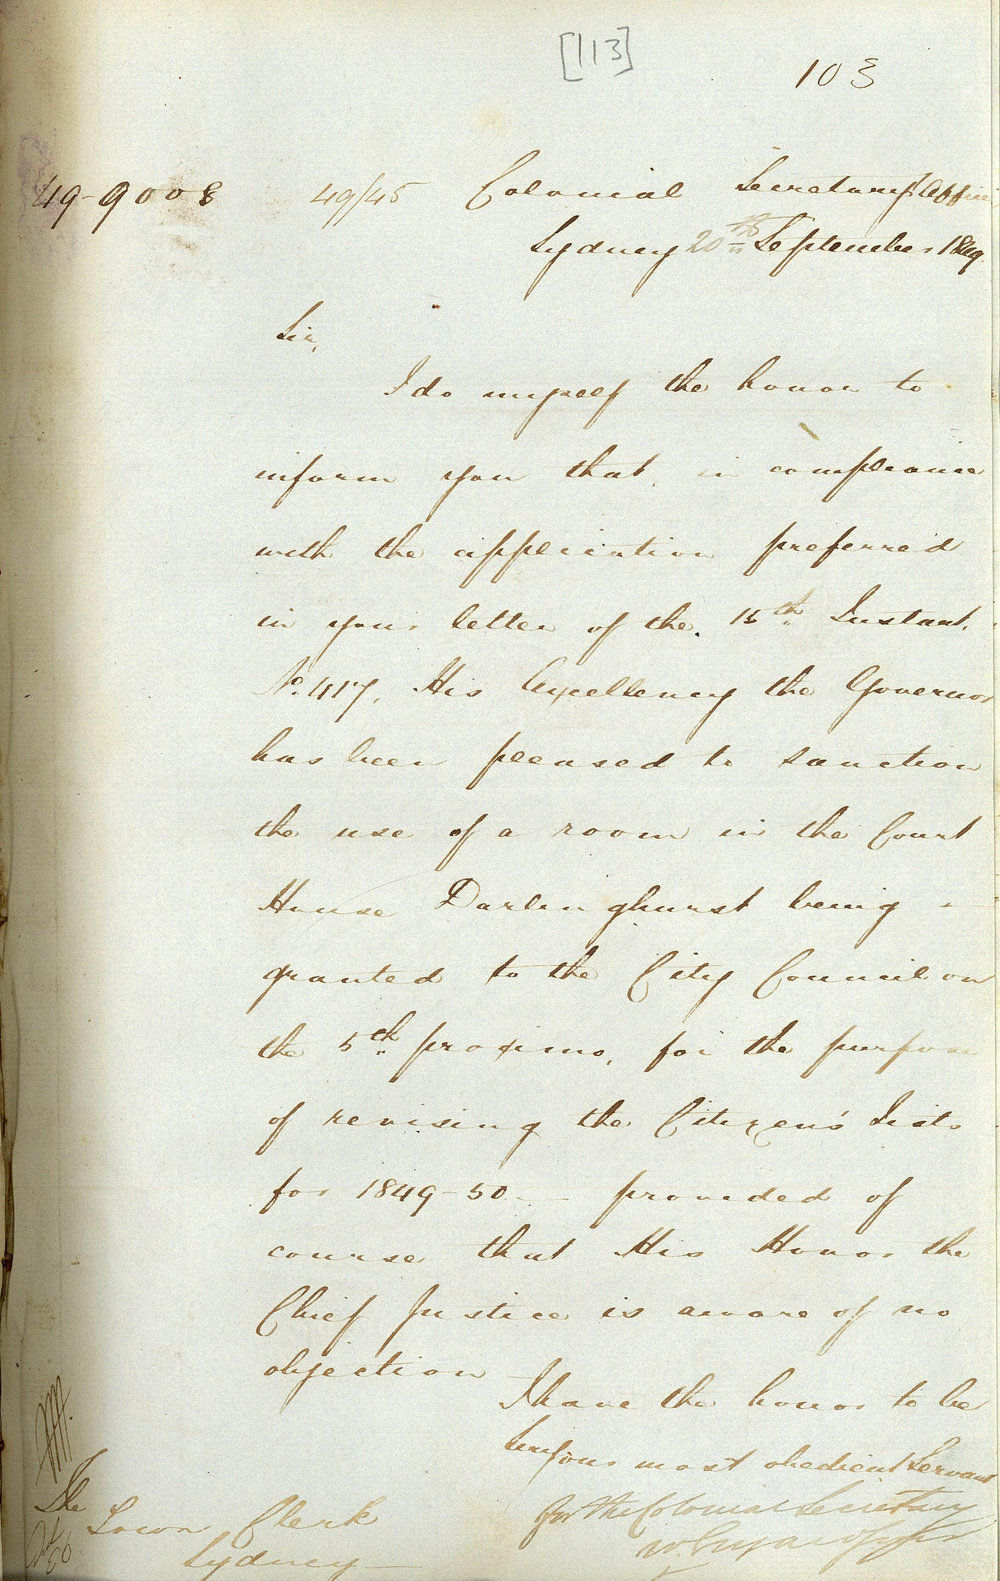 [113]
103
49-9008 49/45 Colonial Secretary's Office
Sydney 20th September 1849.
Sir,
I do myself the honor to
inform you that, in compliance
with the application preferred
in your letter of the 15th Instant.
No. 417, His Excellency the Governor
has been pleased to sanction
the use of a room in the Court
House Darlinghurst being
granted to the City Council on
the 5th proximo, for the purpose
of revising the Citizens' Lists
for 1849-50 - provided of
course that His Honor the
Chief Justice is aware of no
objection
I have the honor to be
Sir, your most obedient Servant
for the Colonial Secretary
W.
The
Town Clerk
Sydney